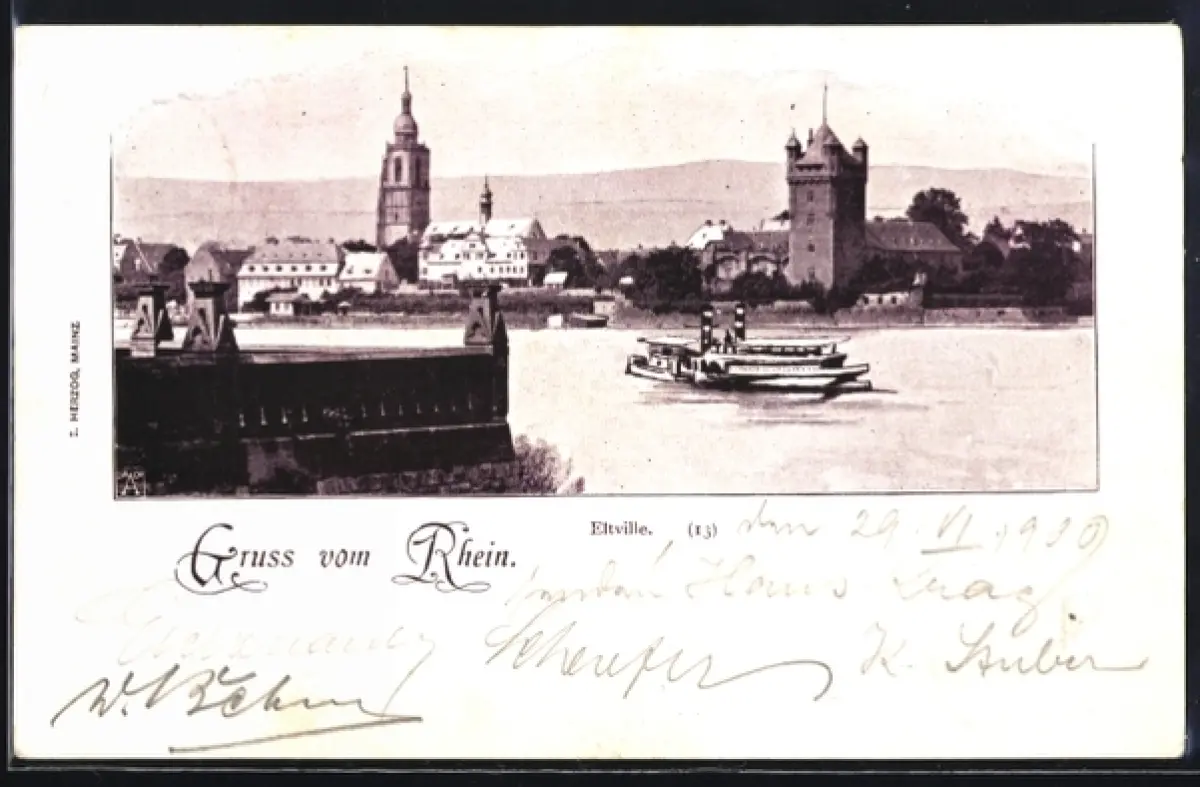 Z. HERZOG, MAINZ
Gruss vom Rhein.
Eltville. (15) den 29. VI. 1900
Hans
Scheufer
K. Stuber
W. Böhm